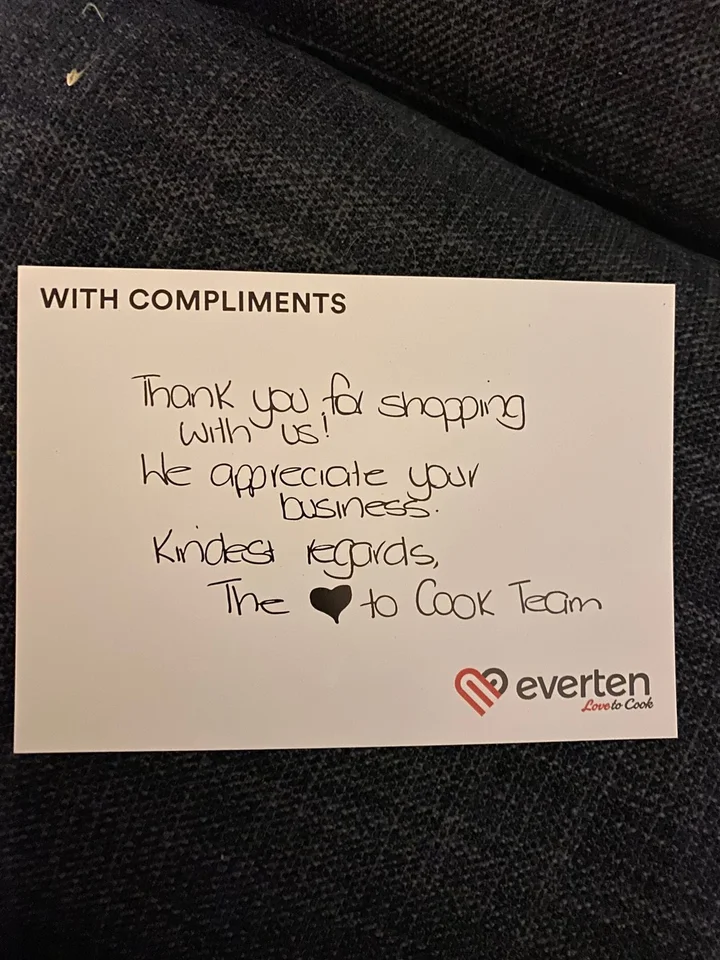 WITH COMPLIMENTS
Thank you for shopping
with us!
We appreciate your
business.
Kindest regards,
The ♥ to Cook Team
everten
Love to Cook